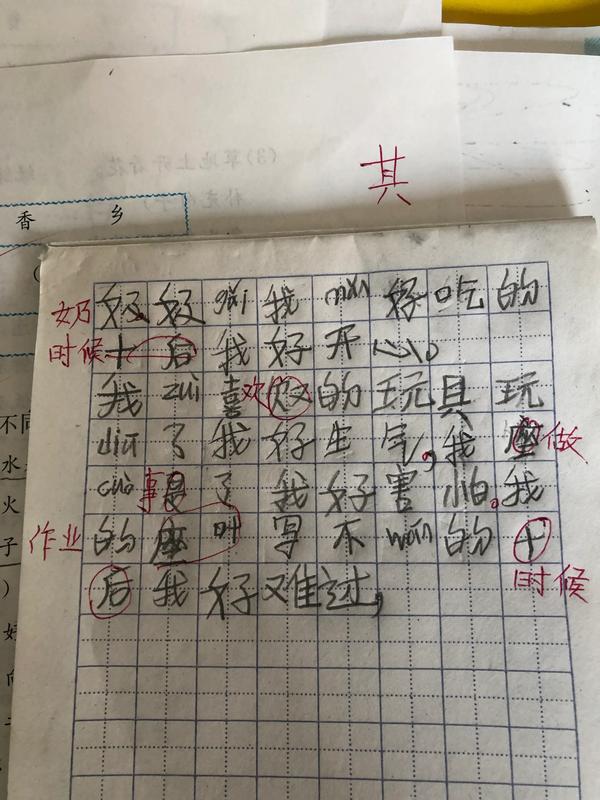 (3)草地上开着花。
其
香 乡
奶奶奶 gěi 我 mǎi 好吃的
时候十后我好开心。
我 zuì 喜欢欢的玩具玩
diū 了我好生气,我座做
cuò 事是了我好害怕。我
作业的座叶写不 wán 的十
时候
后我好难过,
不同
水
火
子
)
好
向